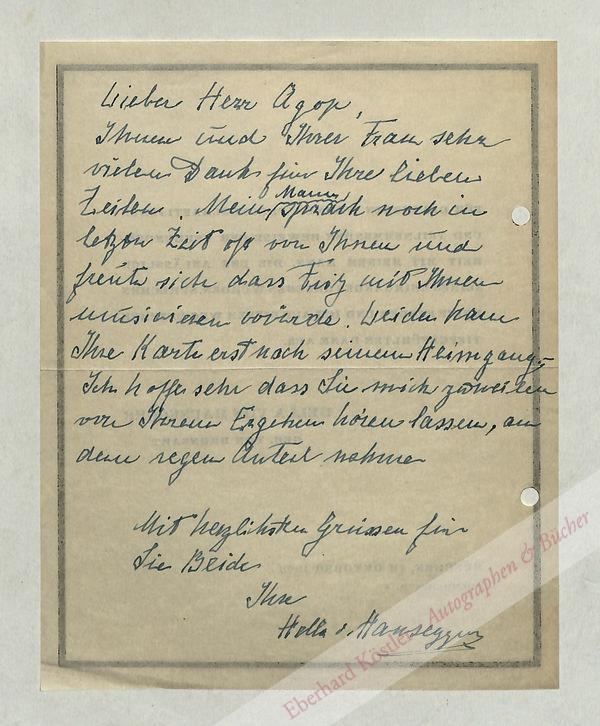 Lieber Herr Agop,
Ihnen und Ihrer Frau sehr
vielen Dank für Ihre lieben
Zeilen. Mein Mann sprach noch in
letzter Zeit oft von Ihnen und
freute sich dass Fritz mit Ihnen
musicieren würde. Leider kam
Ihre Karte erst nach seinem Heimgang.
Ich hoffe sehr dass Sie mich zuweilen
von Ihrem Ergehen hören lassen, an
dem regen Anteil nehme
Mit herzlichsten Grüssen für
Sie Beide
Ihre
Hella v. Hausegger
Eberhard Köstler Autographen & Bücher